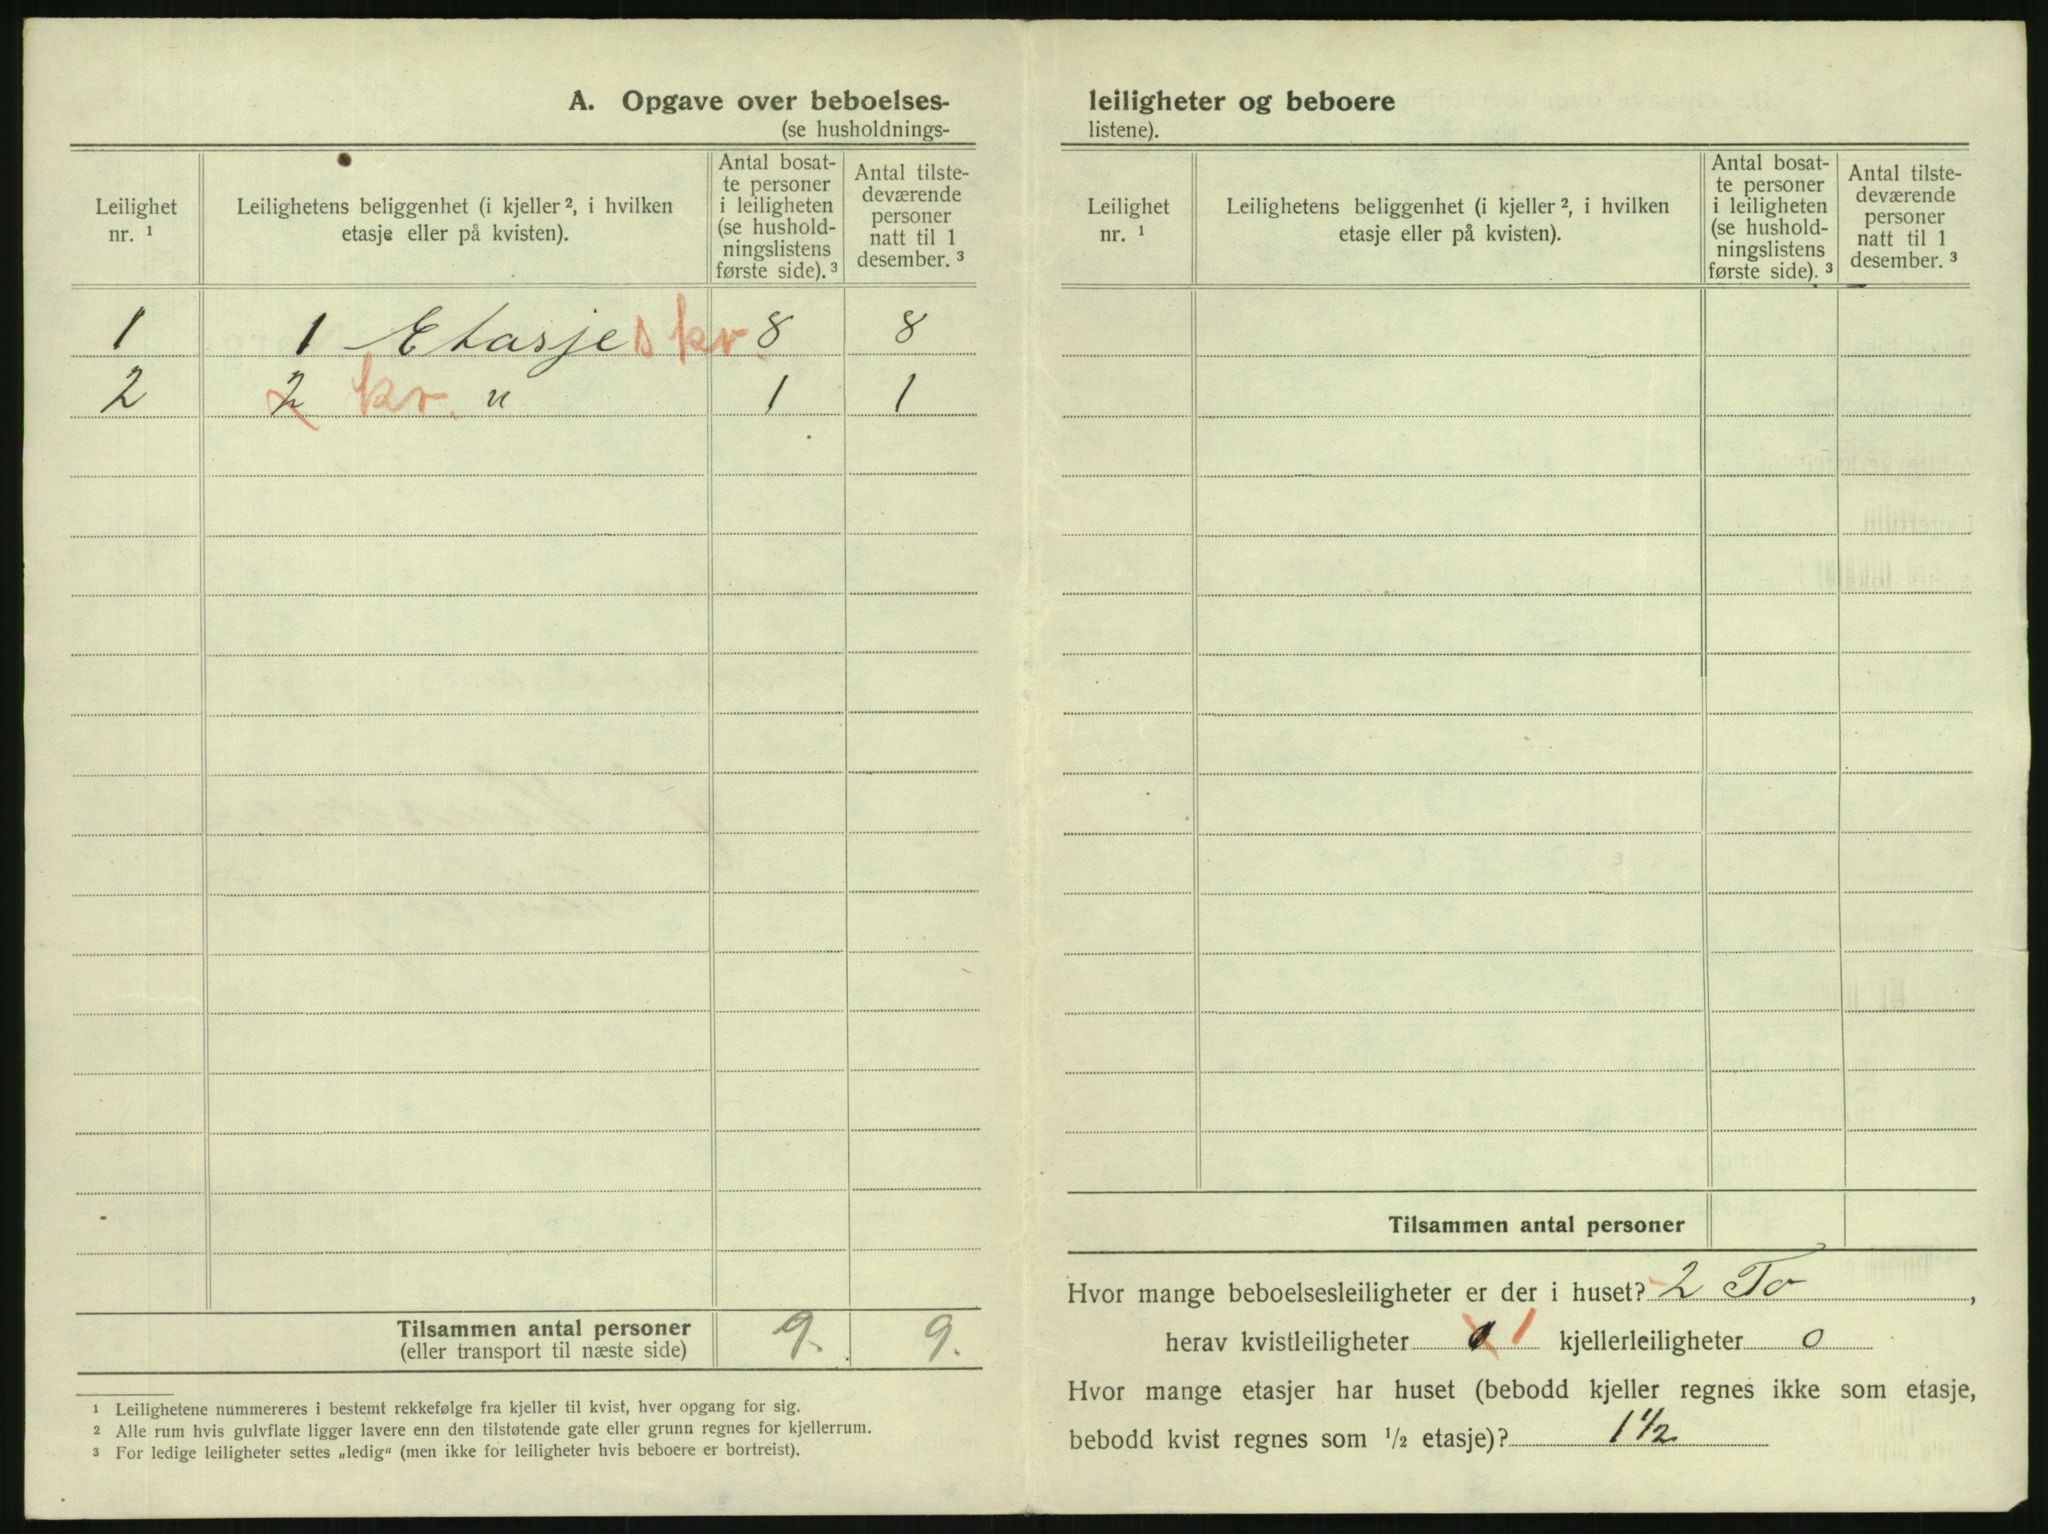 A. Opgave over beboelses-
(se husholdnings-
Leilighet nr. ¹
Leilighetens beliggenhet (i kjeller ², i hvilken etasje eller på kvisten).
Antal bosat-
te personer
i leiligheten
(se hushold-
ningslistens
første side). ³
Antal tilste-
deværende
personer
natt til 1
desember. ³
1 1 Etasje s kr. 8 8
2 2 kr. " 1 1
Tilsammen antal personer 9. 9.
(eller transport til næste side)
¹ Leilighetene nummereres i bestemt rekkefølge fra kjeller til kvist, hver opgang for sig.
² Alle rum hvis gulvflate ligger lavere enn den tilstøtende gate eller grunn regnes for kjellerrum.
³ For ledige leiligheter settes „ledig“ (men ikke for leiligheter hvis beboere er bortreist).
leiligheter og beboere
listene).
Leilighet nr. ¹
Leilighetens beliggenhet (i kjeller ², i hvilken etasje eller på kvisten).
Antal bosat-
te personer
i leiligheten
(se hushold-
ningslistens
første side). ³
Antal tilste-
deværende
personer
natt til 1
desember. ³
Tilsammen antal personer
Hvor mange beboelsesleiligheter er der i huset? 2 To ,
herav kvistleiligheter 0 1 kjellerleiligheter 0
Hvor mange etasjer har huset (bebodd kjeller regnes ikke som etasje,
bebodd kvist regnes som ½ etasje)? 1½